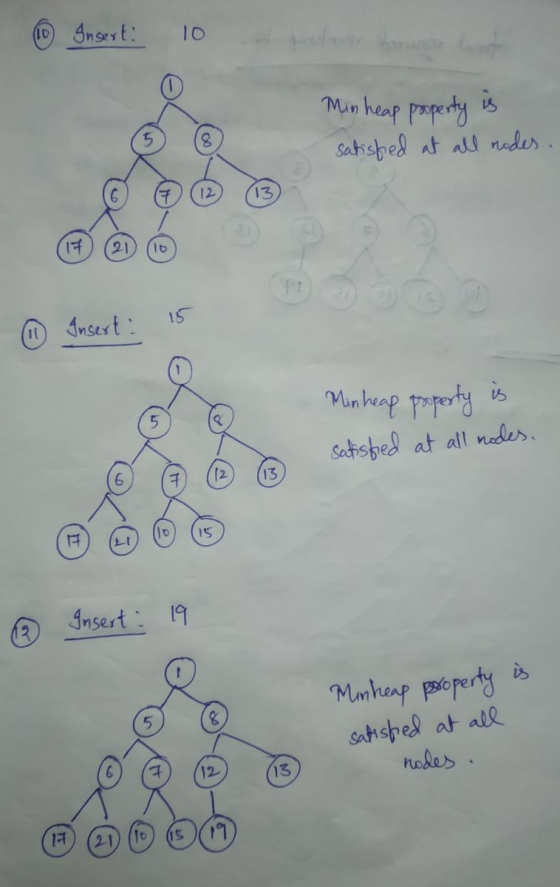 10 Insert: 10
1
Minheap property is
5 8
satisfied at all nodes.
6 7 12 13
17 21 10
11 Insert: 15
1
Minheap property is
5 8
satisfied at all nodes.
6 7 12 13
17 21 10 15
12 Insert: 19
1
Minheap property is
5 8
satisfied at all
6 7 12 13
nodes.
17 21 10 15 19